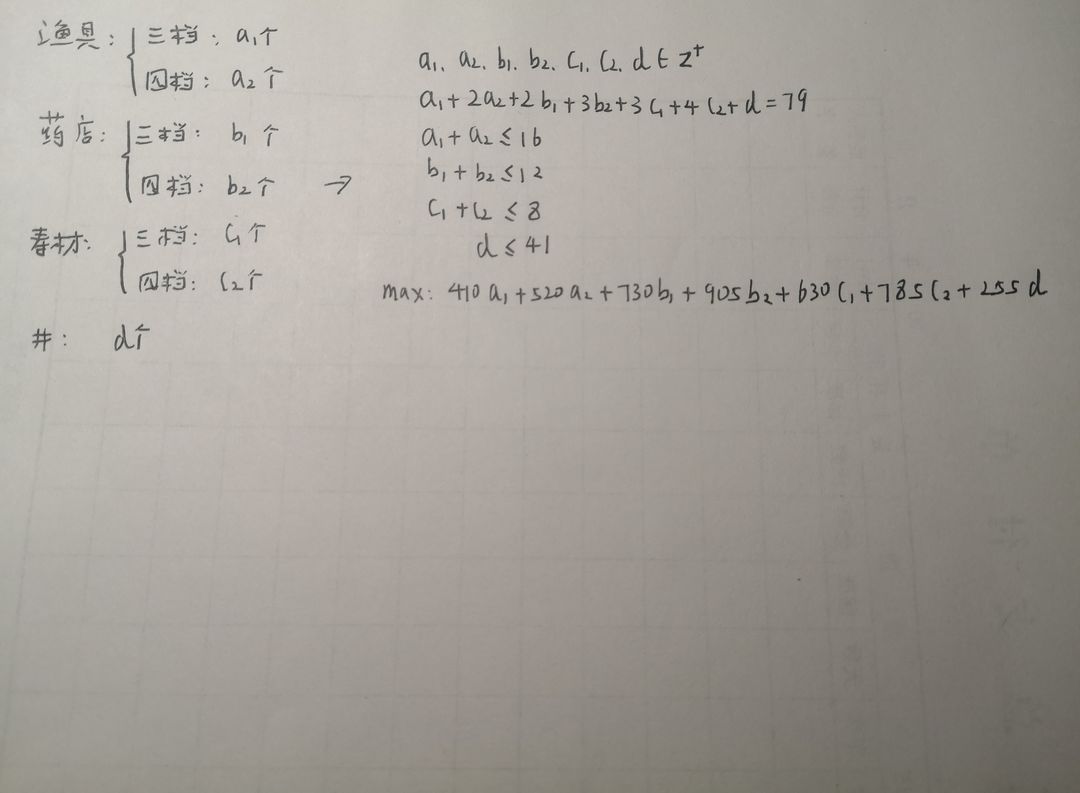 渔具: 三档: a₁个
四档: a₂个
药店: 三档: b₁个
四档: b₂个 →
寿材: 三档: C₁个
四档: C₂个
井: d个
a₁、a₂、b₁、b₂、C₁、C₂、d ∈ Z⁺
a₁+2a₂+2b₁+3b₂+3C₁+4C₂+d=79
a₁+a₂≤16
b₁+b₂≤12
C₁+C₂≤8
d≤41
max: 410a₁+520a₂+730b₁+905b₂+630C₁+785C₂+255d